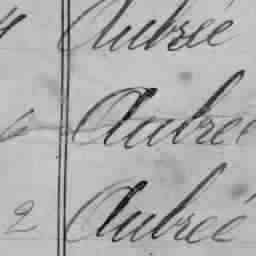 4 Aubrée
6 Aubrée
2 Aubrée